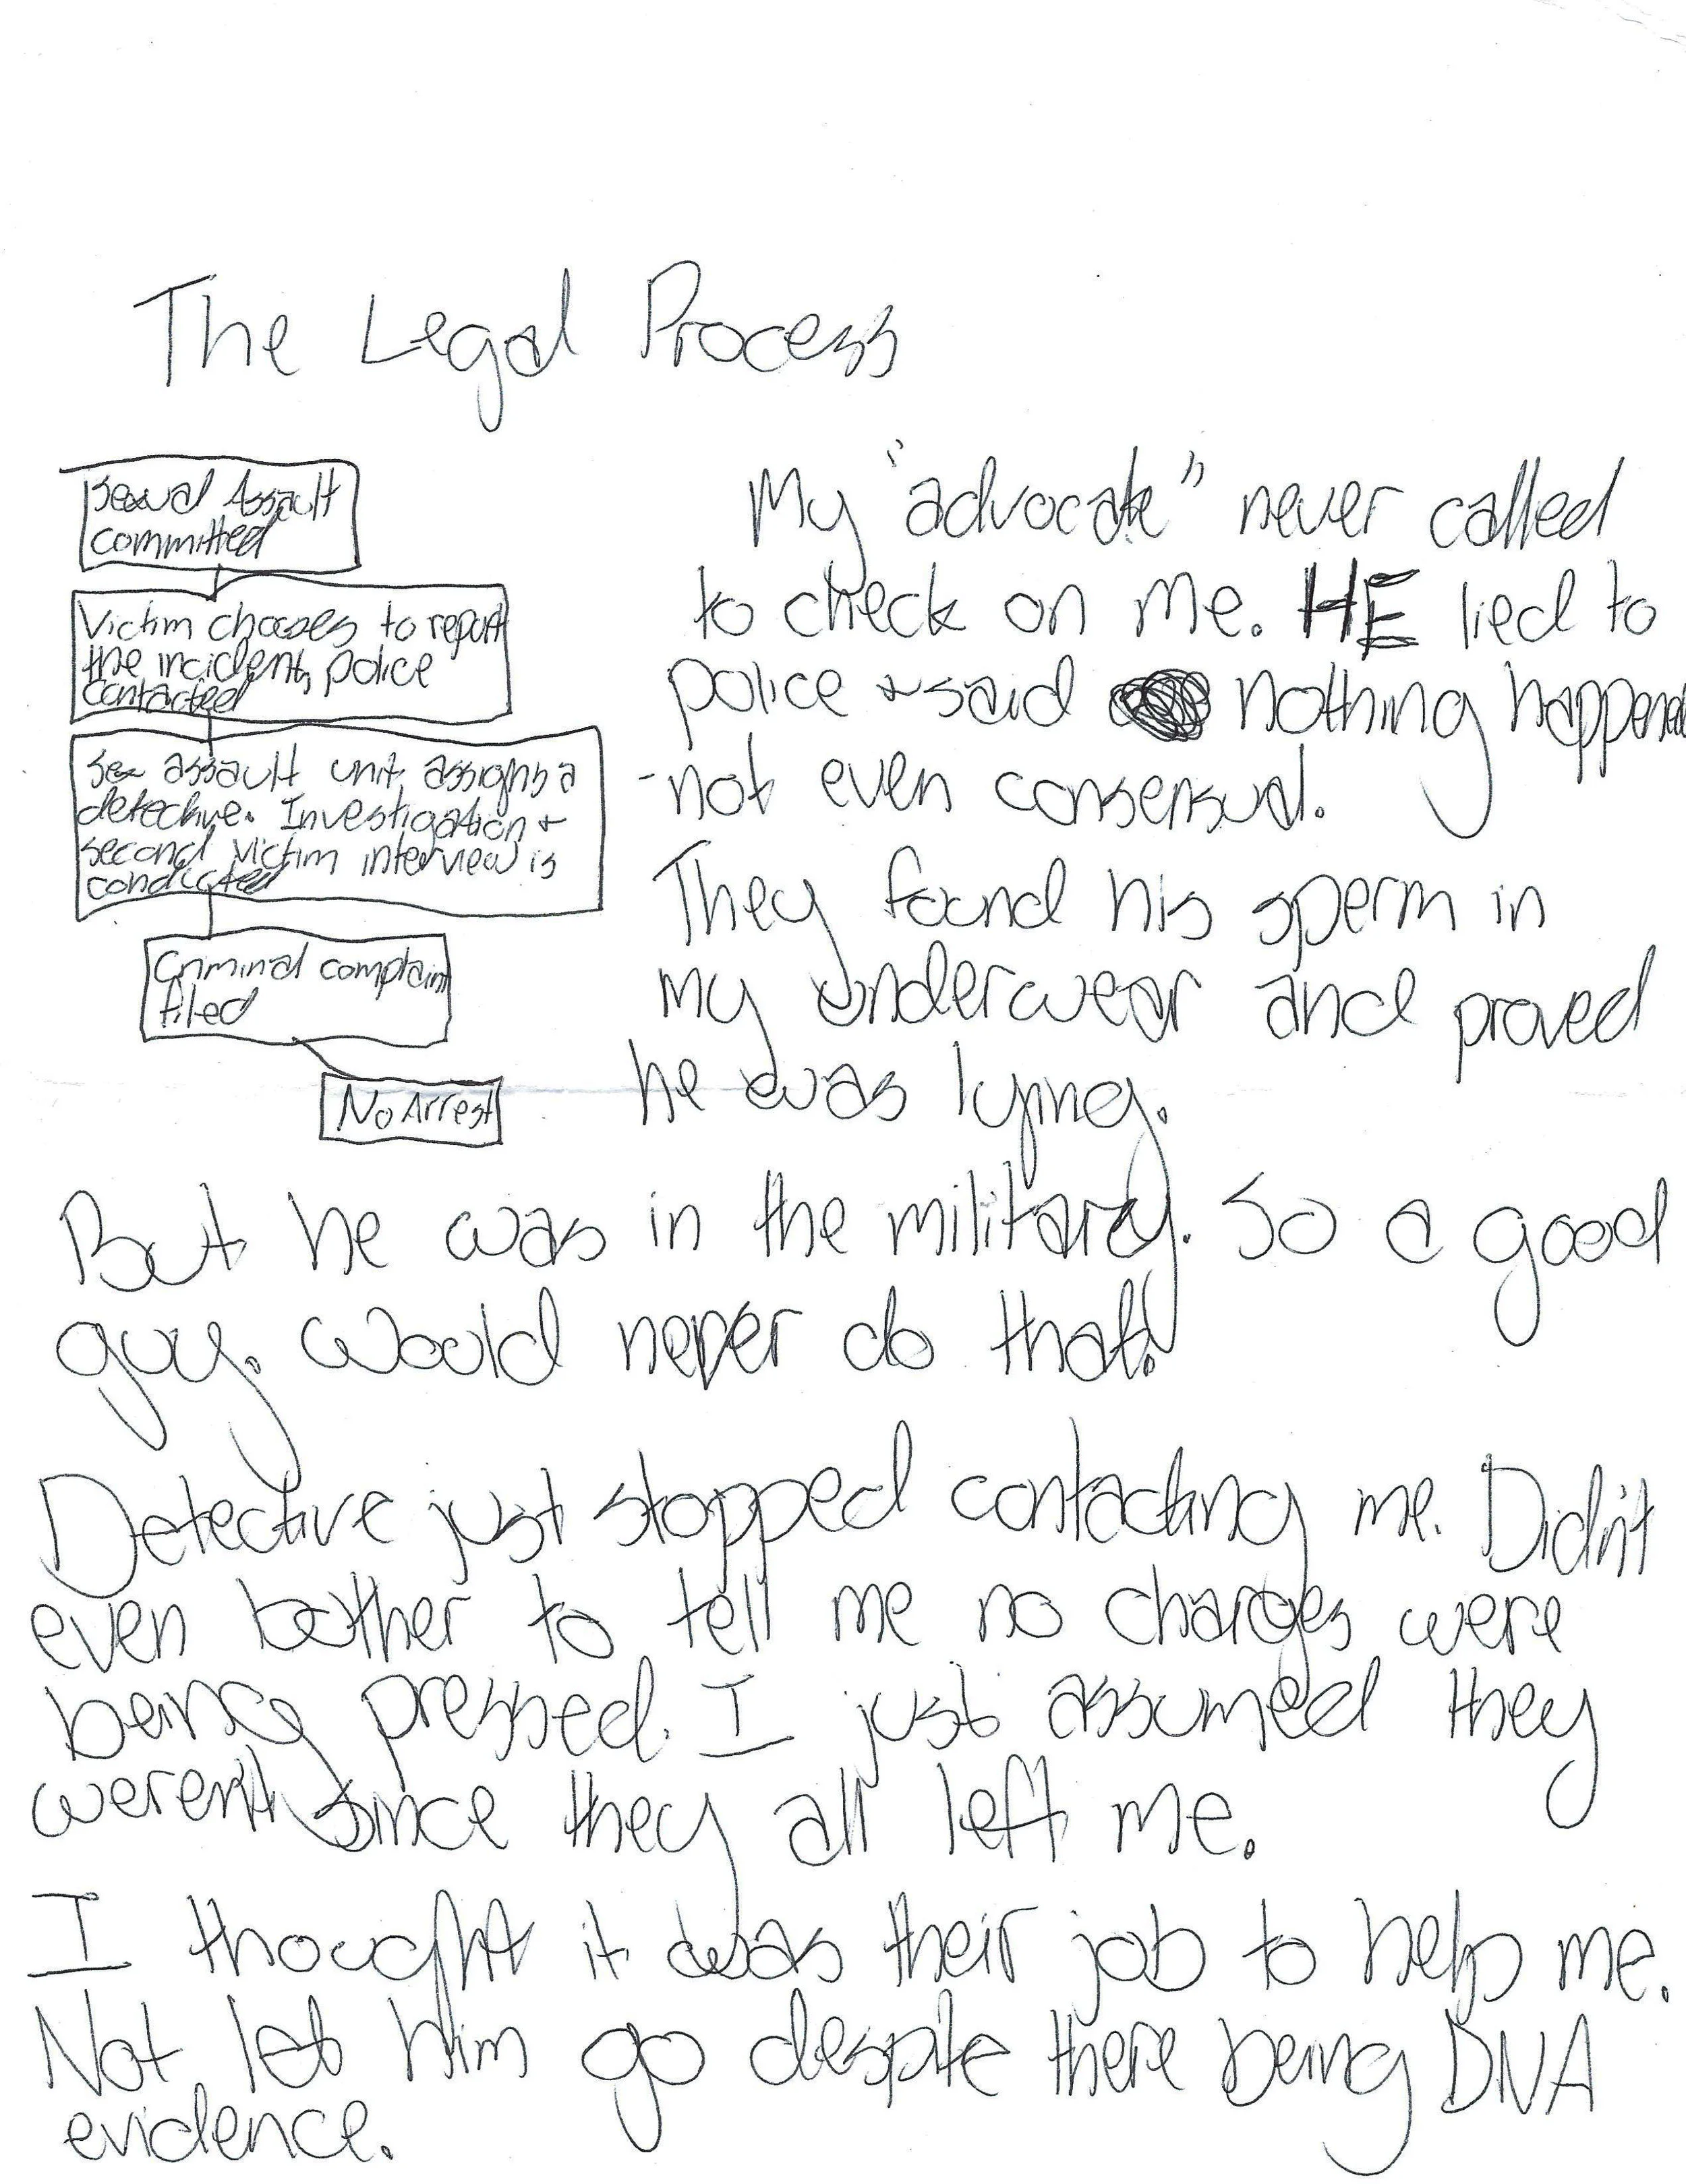 The Legal Process
Sexual Assault
committed
Victim chooses to report
the incident, police
contacted
Sex assault unit assigns a
detective. Investigation +
second victim interview is
conducted
Criminal complaint
filed
No Arrest
My "advocate" never called
to check on me. HE lied to
police + said nothing happened
-not even consensual.
They found his sperm in
my underwear and proved
he was lying.
But he was in the military. So a good
guy. Would never do that!
Detective just stopped contacting me. Didn't
even bother to tell me no charges were
being pressed. I just assumed they
weren't since they all left me.
I thought it was their job to help me.
Not let him go despite there being DNA
evidence.